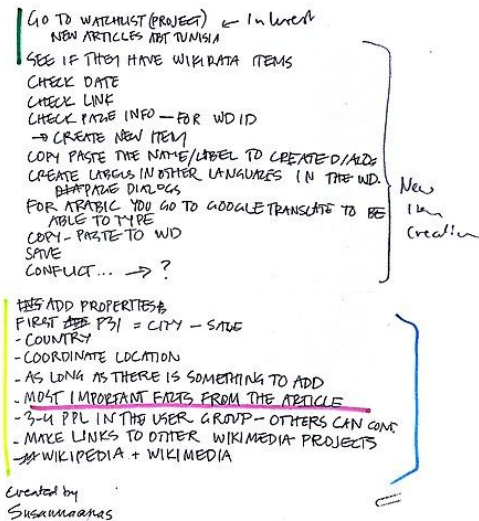 GO TO WATCHLIST (PROJECT) ← Interest
NEW ARTICLES ABT TUNISIA
SEE IF THEY HAVE WIKIDATA ITEMS
CHECK DATE
CHECK LINK
CHECK PAGE INFO — FOR WD ID
→ CREATE NEW ITEM
COPY PASTE THE NAME/LABEL TO CREATE DIALOG
CREATE LABELS IN OTHER LANGUAGES IN THE WD.
PAGE DIALOGS
FOR ARABIC YOU GO TO GOOGLE TRANSLATE TO BE
ABLE TO TYPE
COPY-PASTE TO WD
SAVE
CONFLICT... → ?
New
Item
Creation
ADD PROPERTIES
FIRST P31 = CITY — SAVE
- COUNTRY
- COORDINATE LOCATION
- AS LONG AS THERE IS SOMETHING TO ADD
- MOST IMPORTANT FACTS FROM THE ARTICLE
- 3-4 PPL IN THE USER GROUP — OTHERS CAN CONT
- MAKE LINKS TO OTHER WIKIMEDIA PROJECTS
- WIKIPEDIA + WIKIMEDIA
Created by
Susannaanas